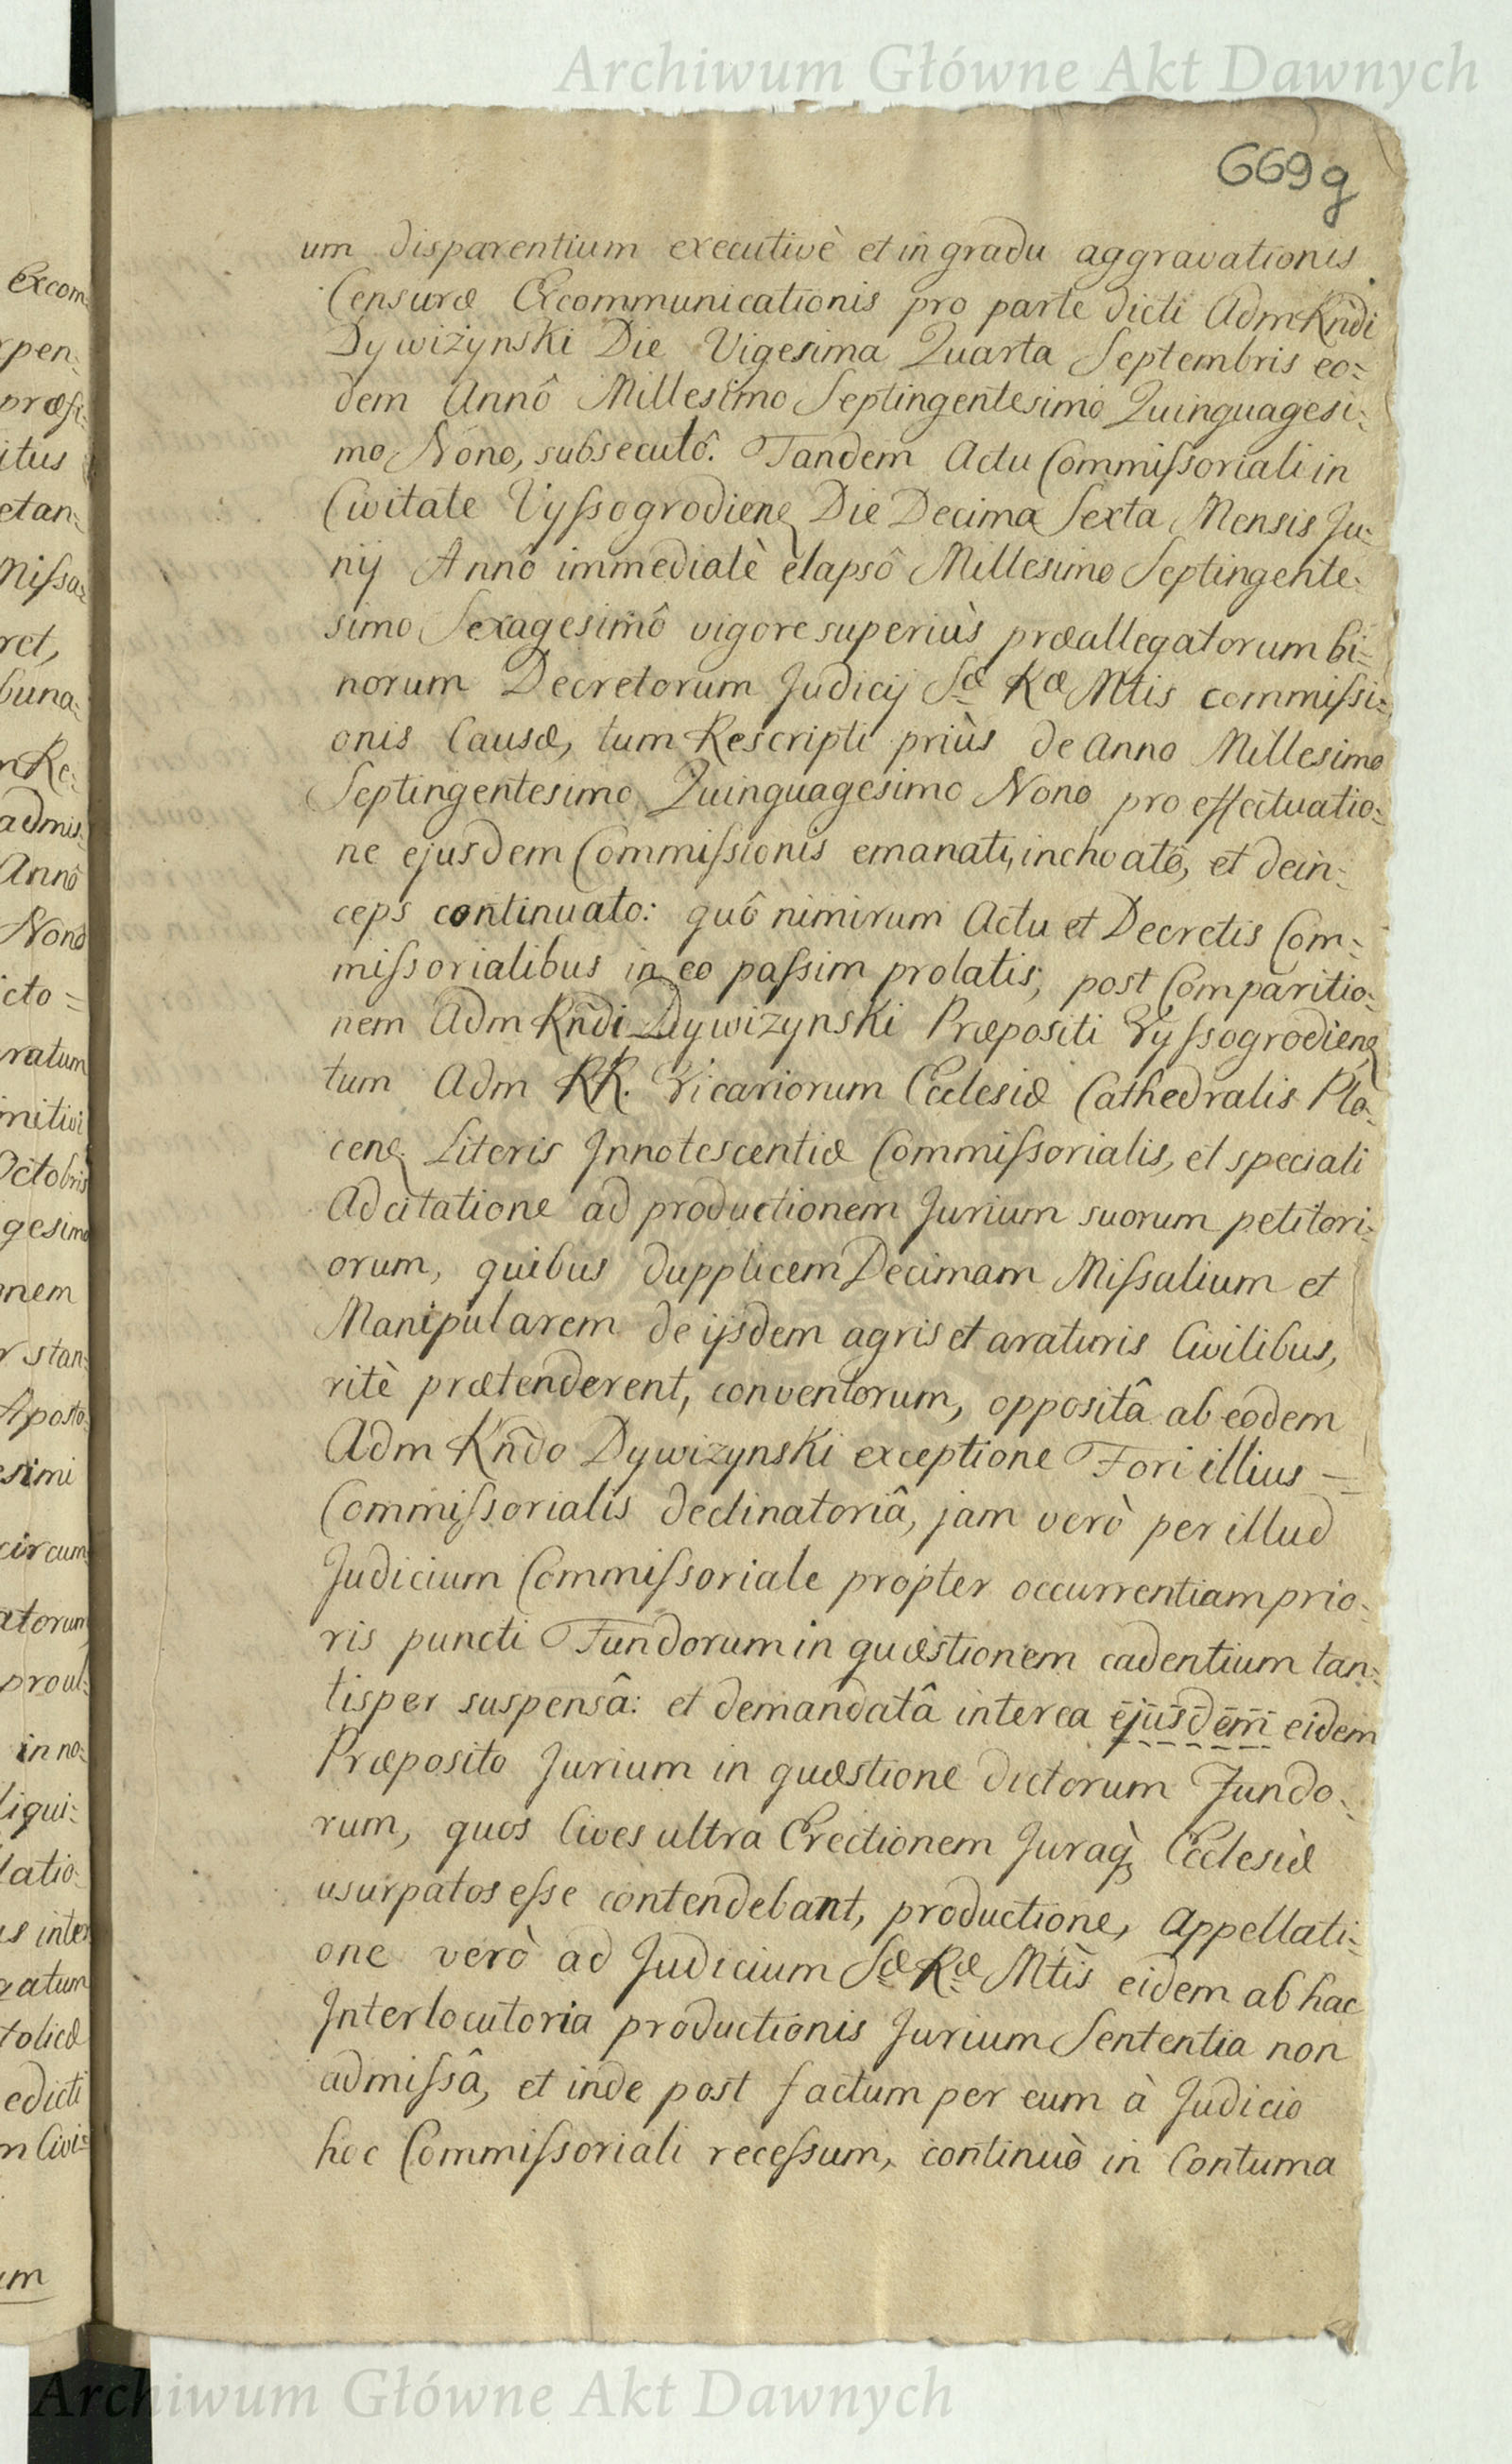 Archiwum Główne Akt Dawnych
669g
um disparentium executivè et in gradu aggravationis
Censuræ Excommunicationis pro parte dicti Adm Rñdi
Dywizynski Die Vigesima Quarta Septembris eo=
dem Annô Millesimo Septingentesimo Quinquagesi=
mo Nono, subsecutô. Tandem Actu Commiſsoriali in
Civitate Vyſsogrodienę Die Decima Sexta Mensis Ju=
nij Annô immediatè elapsô Millesimo Septingente=
simo Sexagesimô vigore superiùs præallegatorum bi=
norum Decretorum Judicij Sæ Ræ Mtis commiſsi=
onis Causæ, tum Rescripti priùs de Anno Millesimo
Septingentesimo Quinquagesimo Nono pro effectuatio=
ne ejusdem Commiſsionis emanati, inchoatô, et dein=
ceps continuato: quô nimirum Actu et Decretis Com=
miſsorialibus in eo paſsim prolatis, post Comparitio=
nem Adm Rñdi Dywizynski Præpositi Vyſsogrodienę
tum Adm RR. Vicariorum Ecclesiæ Cathedralis Plo=
cenę Literis Innotescentiæ Commiſsorialis, et speciali
Adcitatione ad productionem Jurium suorum petitori=
orum, quibus dupplicem Decimam Miſsalium et
Manipularem de ijsdem agris et araturis Civilibus,
ritè prætenderent, conventorum, oppositâ ab eodem
Adm Rñdo Dywizynski exceptione Fori illius =
Commiſsorialis declinatoriâ, jam verò per illud
Judicium Commiſsoriale propter occurrentiam prio=
ris puncti Fundorum in quæstionem cadentium tan=
tisper suspensâ: et demandatâ interea ejusdem eidem
Præposito Jurium in quæstione dictorum Fundo=
rum, quos Cives ultra Erectionem Juraq; Ecclesiæ
usurpatos eſse contendebant, productione, Appellati=
one verò ad Judicium Sæ Ræ Mtis eidem ab hac
Interlocutoria productionis Jurium Sententia non
admiſsâ, et inde post factum per eum à Judicio
hoc Commiſsoriali receſsum, continuò in Contuma
Archiwum Główne Akt Dawnych